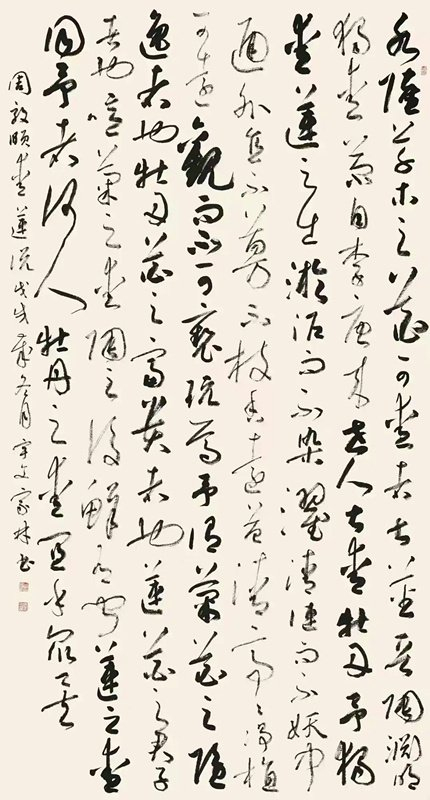 水陸草木之花可愛者甚蕃晉陶淵明
獨愛菊自李唐來世人甚愛牡丹予獨
愛蓮之出淤泥而不染濯清漣而不妖中
通外直不蔓不枝香遠益清亭亭淨植
可遠觀而不可褻玩焉予謂菊花之隱
逸者也牡丹花之富貴者也蓮花之君子
者也噫菊之愛陶之後鮮有聞蓮之愛
同予者何人牡丹之愛宜乎眾矣
周敦頤愛蓮說戊戌歲冬月宇文家林書